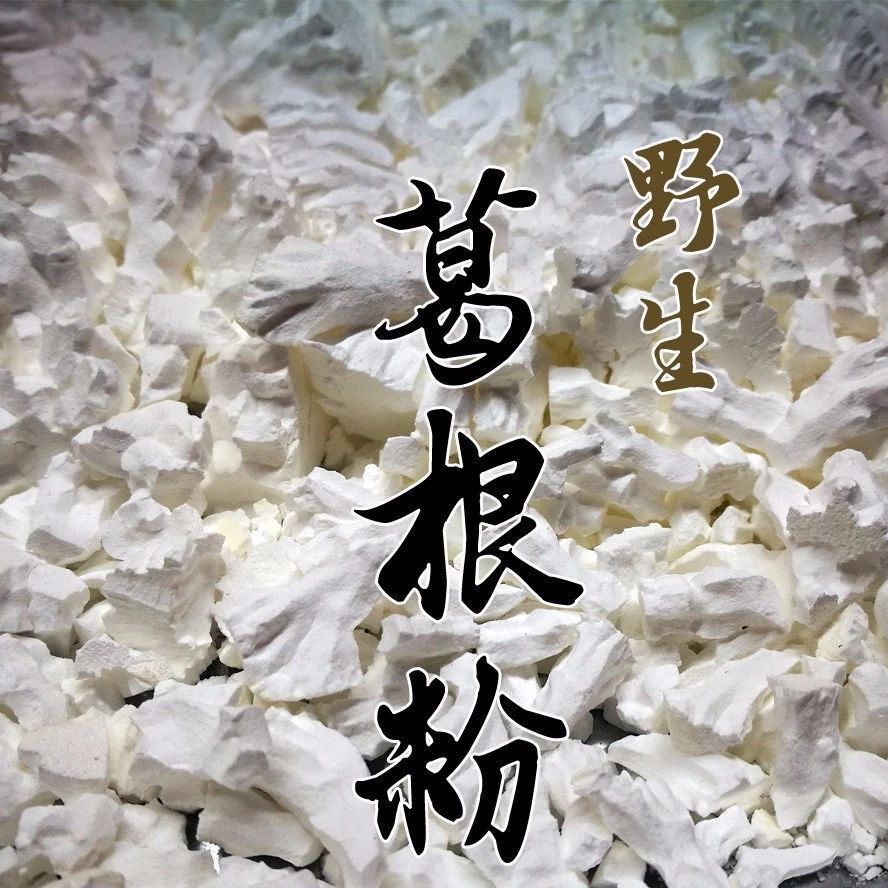 野生
葛根粉